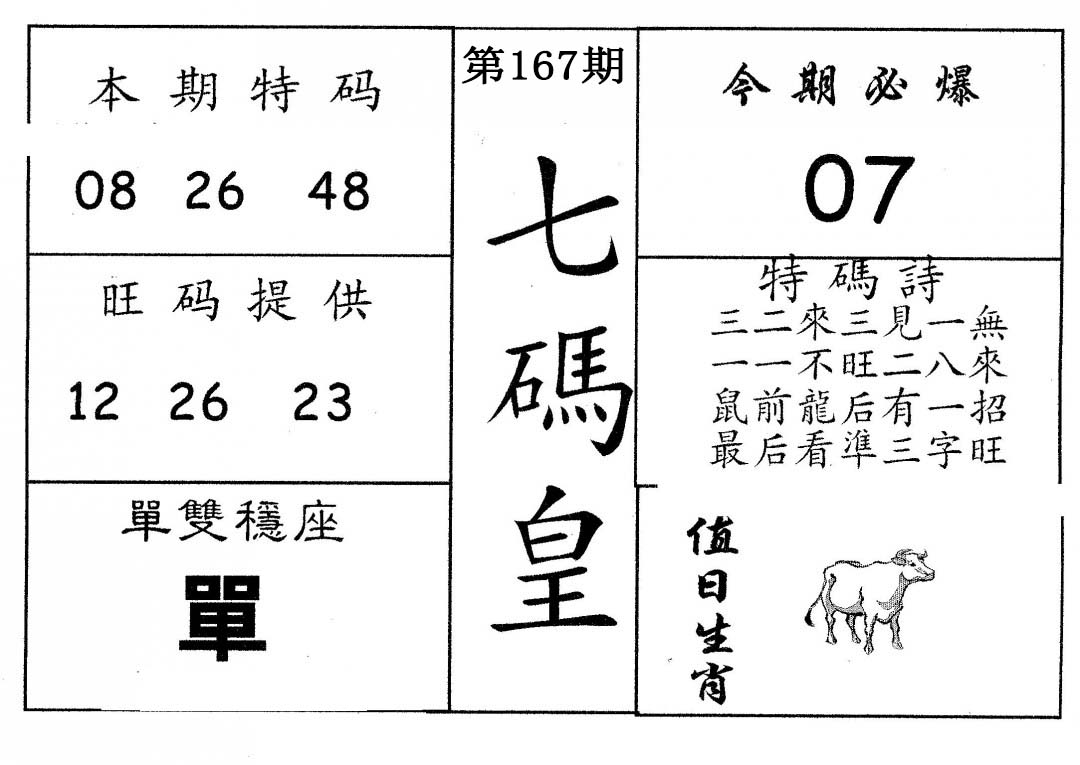 本期特码
08 26 48
旺码提供
12 26 23
單雙穩座
單
第167期
七碼皇
今期必爆
07
特碼詩
三二來三見一無
一一不旺二八來
鼠前龍后有一招
最后看準三字旺
值日生肖